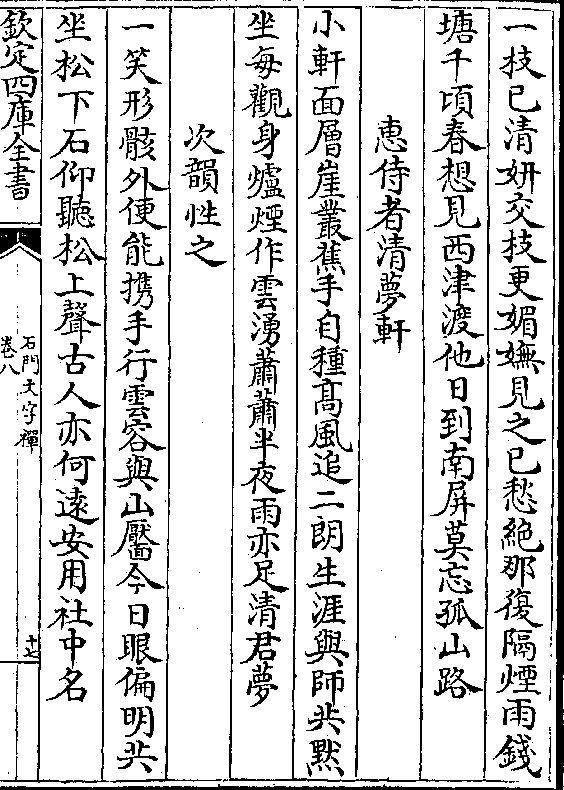 一枝已清妍交枝更媚嫵見之已愁絶那復隔煙雨錢
塘千頃春想見西津渡他日到南屏莫忘孤山路
惠侍者清夢軒
小軒面層崖叢蕉手自種高風追二朗生涯與師共默
坐每觀身爐煙作雲湧蕭蕭半夜雨亦足清君夢
次韻性之
一笑形骸外便能攜手行雲容與山靨今日眼偏明共
坐松下石仰聽松上聲古人亦何遠安用社中名
欽定四庫全書
石門文字禪
卷八
十七